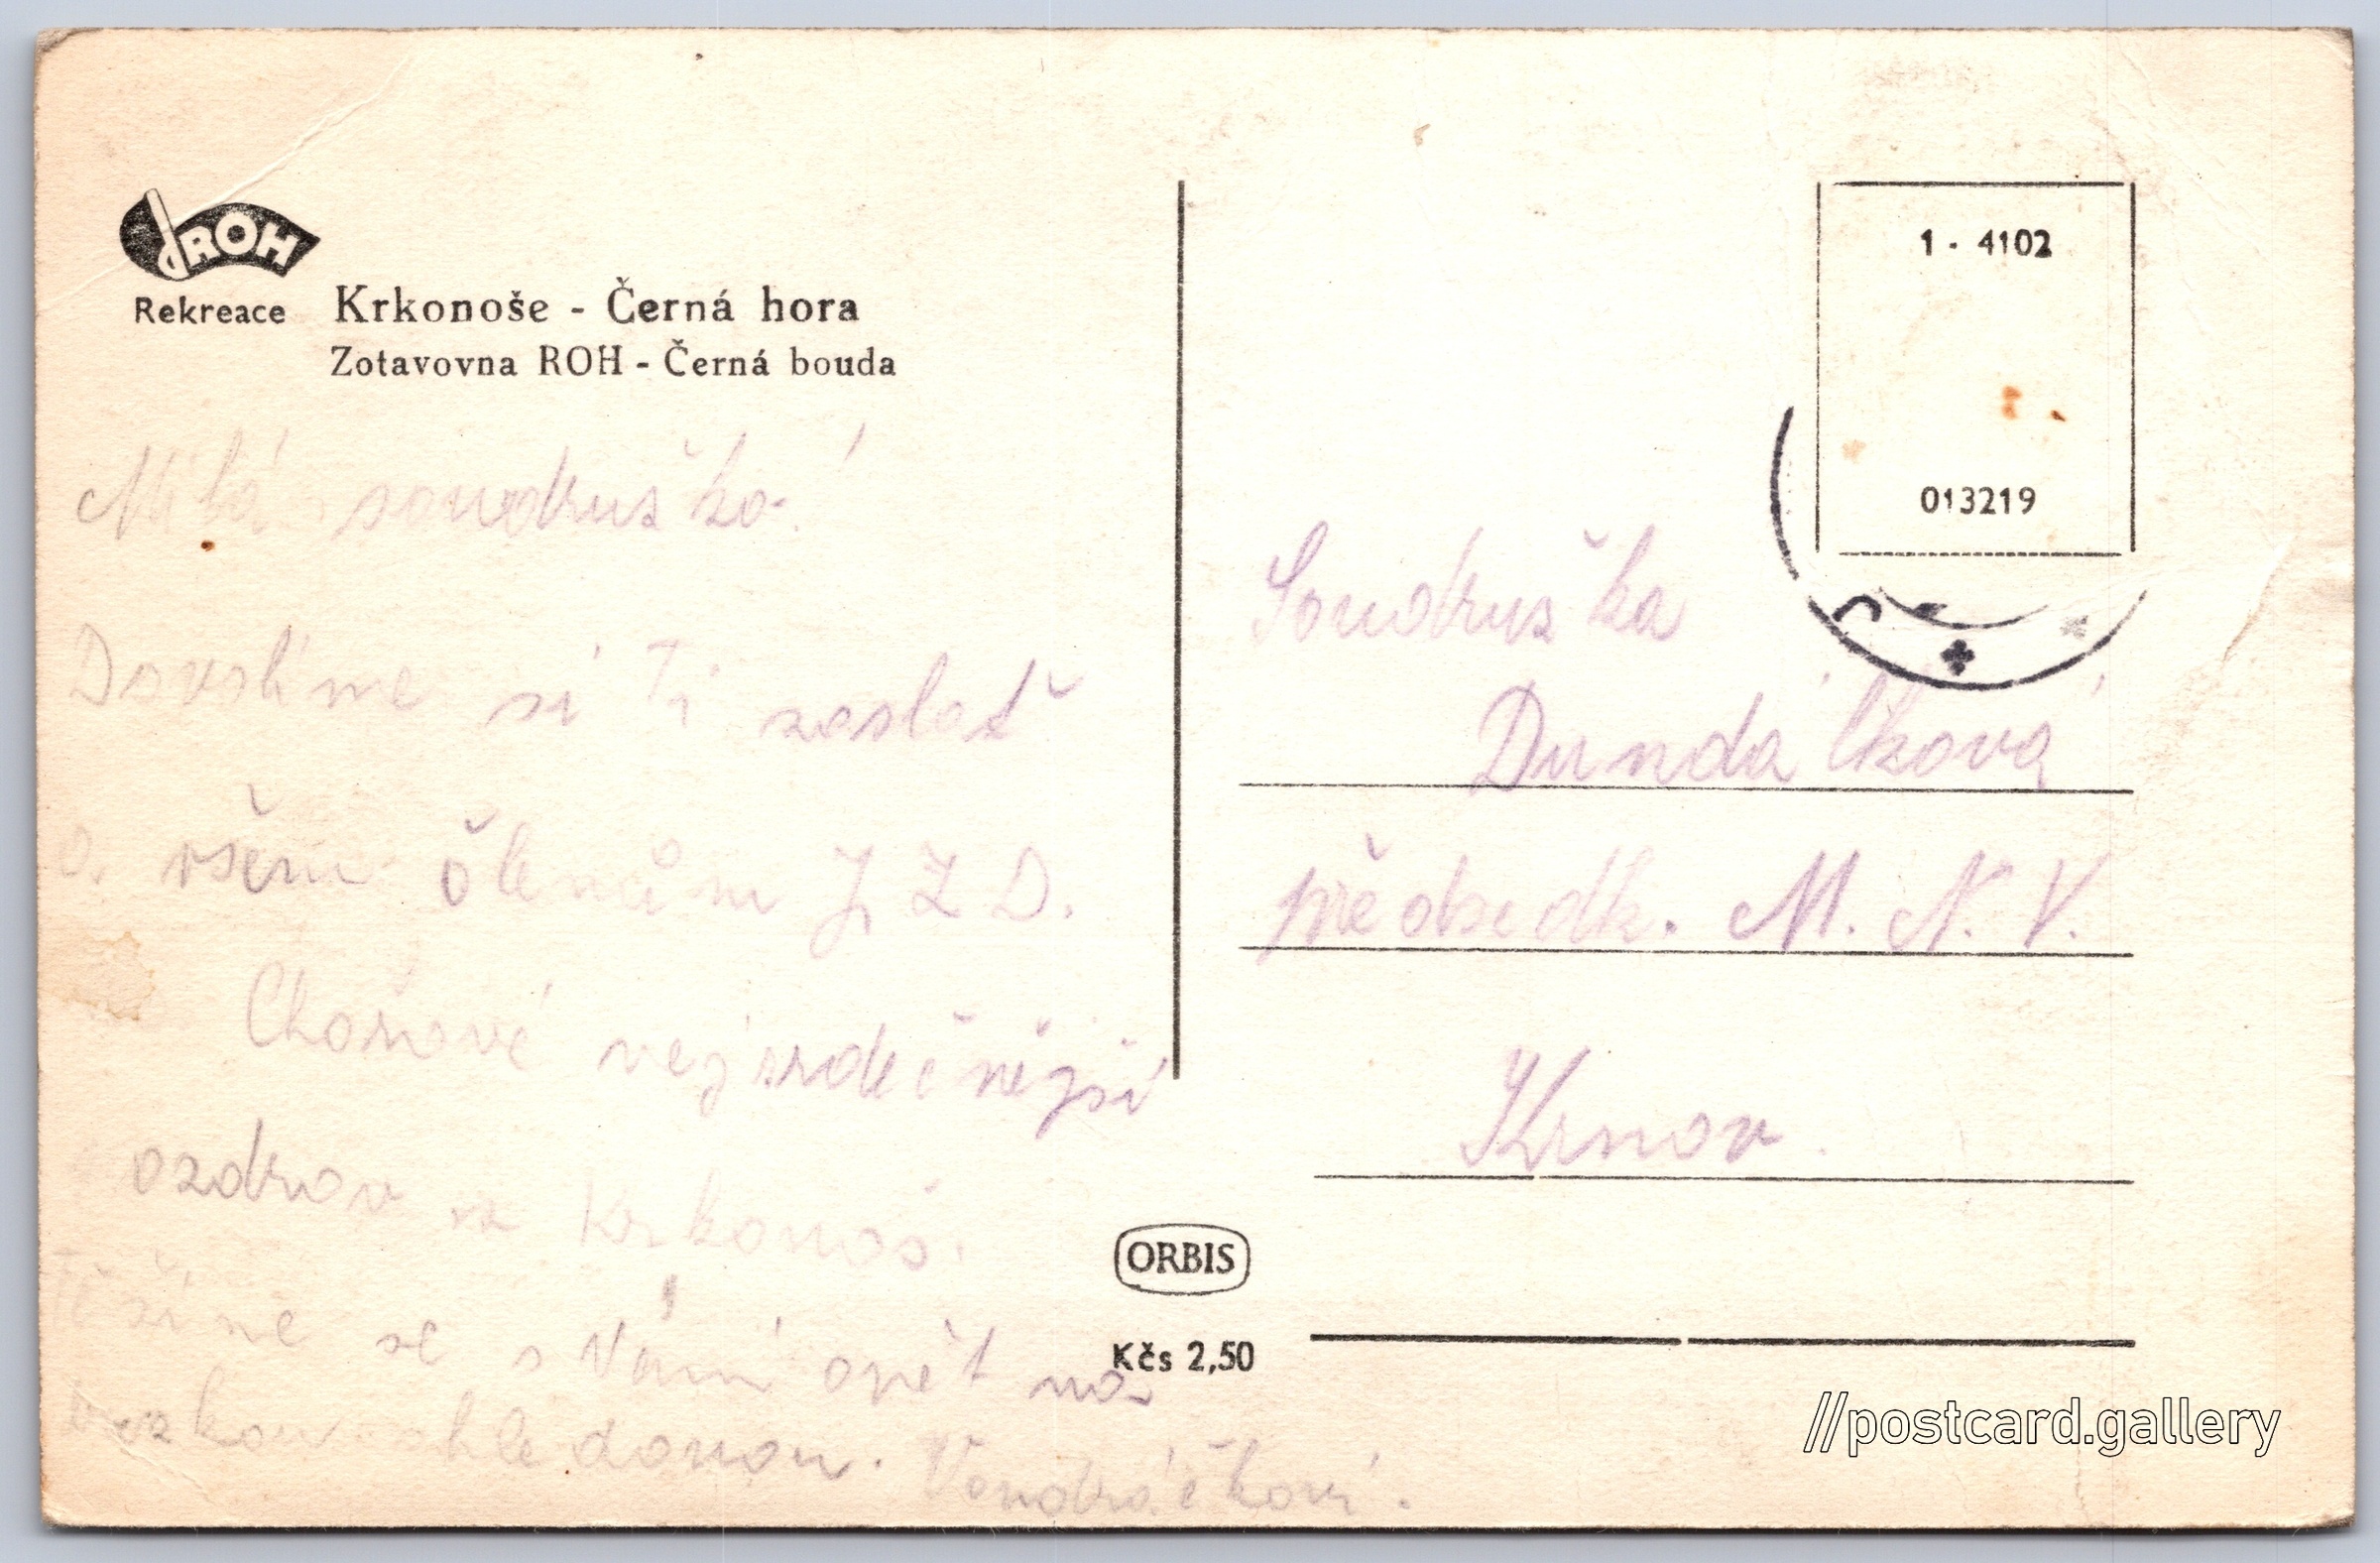 ROH
Rekreace
Krkonoše - Černá hora
Zotavovna ROH - Černá bouda
Milá soudruško!
Dovolíme si Ti zaslať
a všem členům J Z D.
Chořové nejsrdečnější
ozdrav z Krkonoš.
Těšíme se s Vámi opět na
brzkou shledanou. Vondráčkovi.
1 - 4102
013219
Soudruška
Dundálková
předsedk. M. N. V.
Krnov.
ORBIS
Kčs 2,50
//postcard.gallery